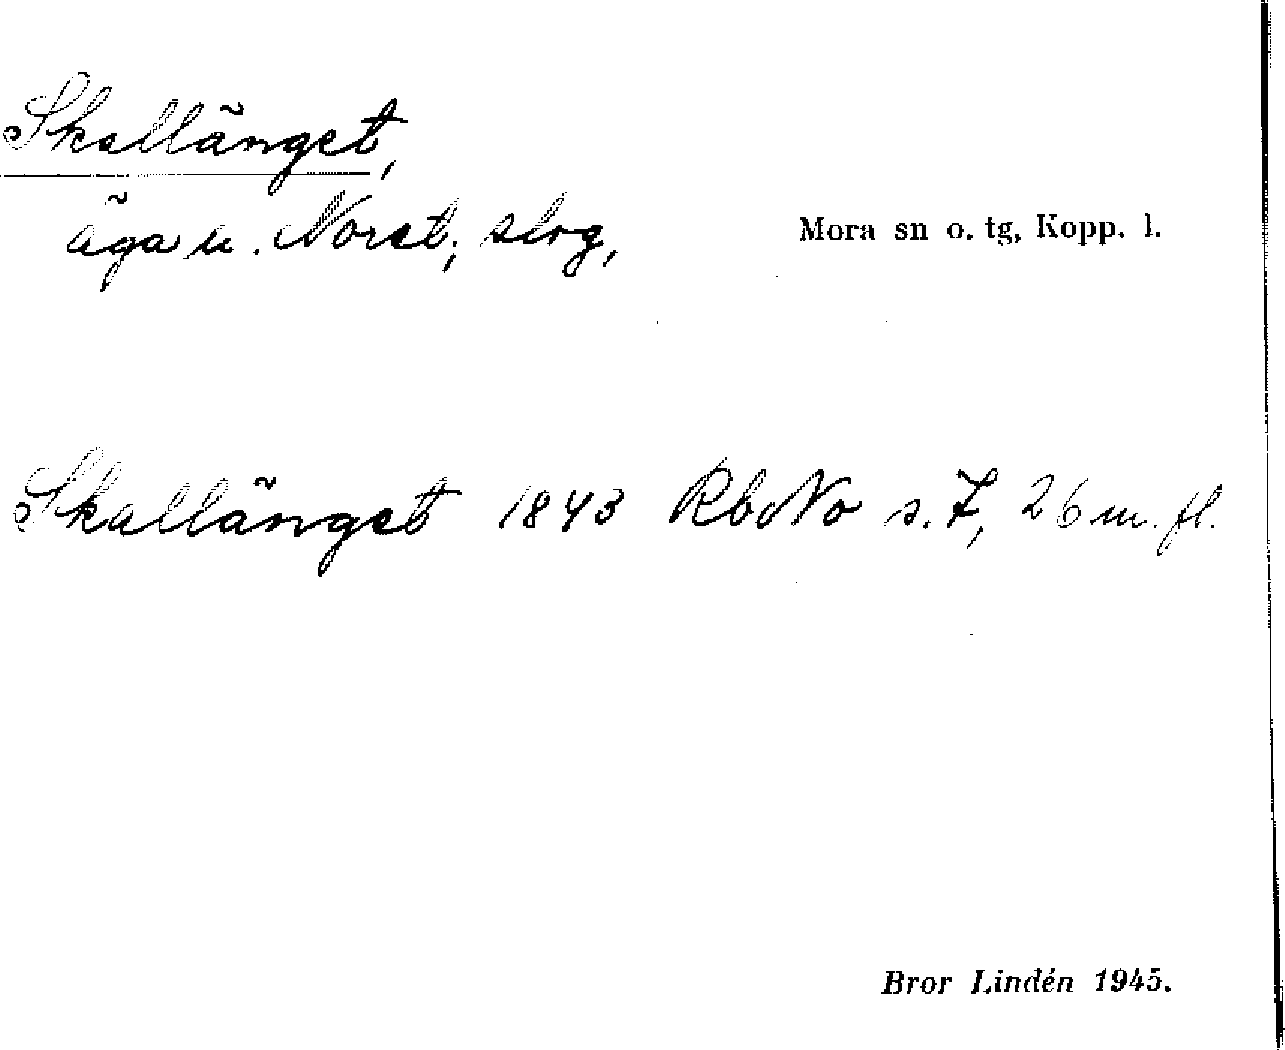 Skallänget,
äga u. Noret, slog, Mora sn o. tg, Kopp. l.
Skallänget 1843 RboNo s. 7, 26 m. fl.
Bror Lindén 1945.